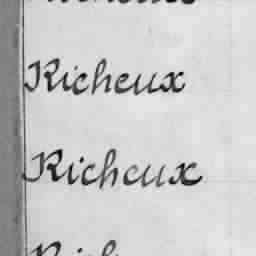 Richeux
Richeux